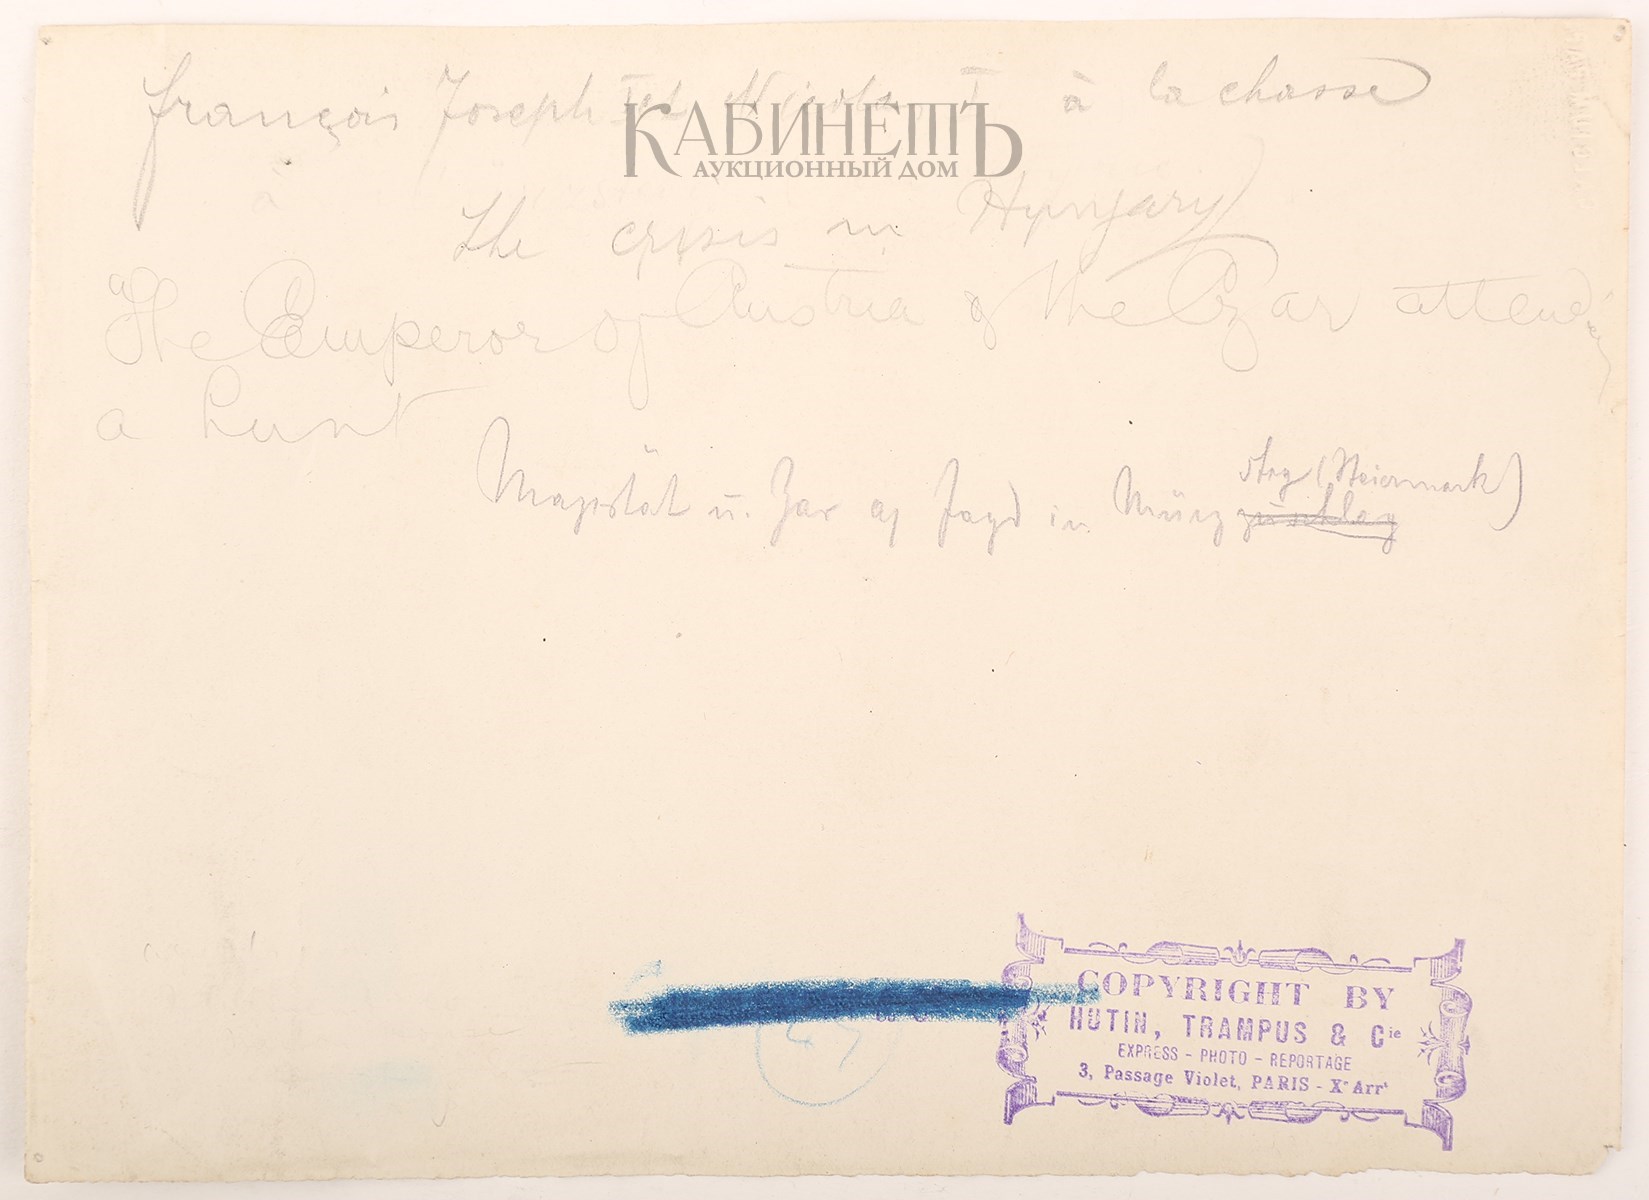 françois Joseph Ier et Nicolas I à la chasse
КАБИНЕТЪ
АУКЦИОННЫЙ ДОМ
à
The crisis in Hungary
The Emperor of Austria & the Czar attending
a hunt
steg (Steiermark)
Majestät u. Zar a/ Jagd in Mürzzuschlag
COPYRIGHT BY
HUTIN, TRAMPUS & Cie
EXPRESS - PHOTO - REPORTAGE
3, Passage Violet, PARIS - Xe Arrt